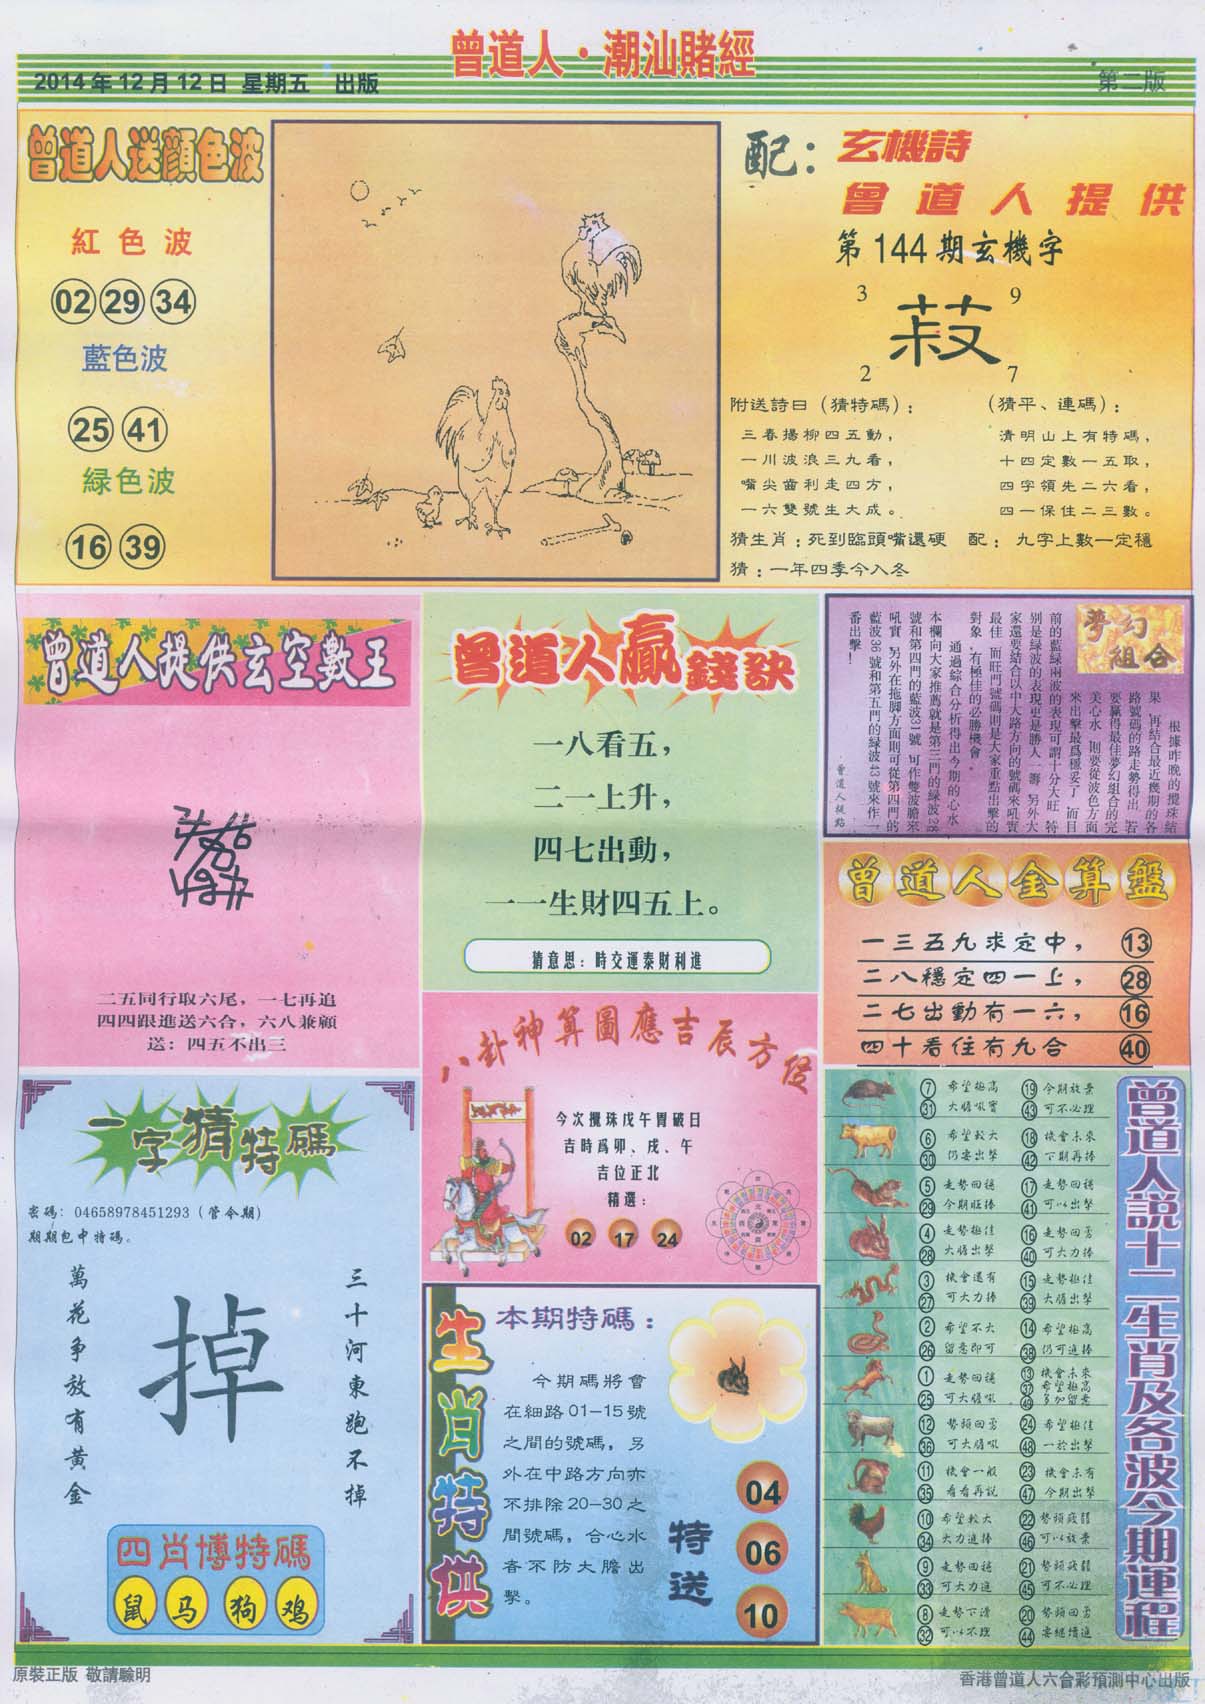 曾道人·潮汕賭經
2014年12月12日 星期五 出版
第二版
曾道人送顔色波
紅色波
02 29 34
藍色波
25 41
緑色波
16 39
配：
玄機詩
曾道人提供
第144期玄機字
3 9
2 7
附送詩曰（猜特碼）：
三春揚柳四五動，
一川波浪三九看，
嘴尖齒利走四方，
一六雙號生大成。
（猜平、連碼）：
清明山上有特碼，
十四定數一五取，
四字領先二六看，
四一保住二三數。
猜生肖：死到臨頭嘴還硬 配： 九字上數一定穩
猜：一年四季今入冬
曾道人提供玄空數王
二五同行取六尾，一七再追
四四跟進送六合，六八兼顧
送：四五不出三
曾道人贏錢訣
一八看五，
二一上升，
四七出動，
一一生財四五上。
猜意思：時交運泰財利進
夢幻
組合
根據昨晚的攪珠結
果，再結合最近幾期的各
路號碼的路走勢得出，若
要贏得最佳夢幻組合的完
美心水，則要從波色方面
來出擊最爲穩妥了，而目
前的藍緑兩波的表現可謂十分大旺，特
别是緑波的表現更是勝人一籌，另外大
家還要結合以中大路方向的號碼來吼實
最佳，而旺門號碼則是大家重點出擊的
對象，有極佳的必勝機會。
通過綜合分析得出今期的心水
本欄向大家推薦就是第三門的緑波28
號和第四門的藍波31號，可作雙波膽來
吼實，另外在拖脚方面則可從第四門的
藍波36號和第五門的緑波43號來作一
番出擊！
曾道人提點
曾道人金算盤
一三五九求定中， 13
二八穩定四一上， 28
二七出動有一六， 16
四十看住有九合 40
八卦神算圖應吉辰方位
今次攪珠戊午胃破日
吉時爲卯、戌、午
吉位正北
精選：
02 17 24
一字猜特碼
密碼：04658978451293（管今期）
期期包中特碼。
萬花争放有黄金
掉
三十河東跑不掉
四肖博特碼
鼠 马 狗 鸡
生肖特供
本期特碼：
今期碼將會
在細路01-15號
之間的號碼，另
外在中路方向亦
不排除20-30之
間號碼，合心水
者不防大膽出
擊。
特送
04
06
10
曾道人説十二生肖及各波今期運程
7 希望極高 19 今期放棄
31 大膽吼實 43 可不必理
6 希望較大 18 機會未來
30 仍要出擊 42 下期再捧
5 走勢回穩 17 走勢回穩
29 今期旺捧 41 可以出擊
4 走勢極佳 16 走勢回勇
28 大膽出擊 40 可大力捧
3 機會還有 15 走勢極佳
27 可大力捧 39 大膽出擊
2 希望不大 14 希望極高
26 留意即可 38 仍可進捧
1 走勢回穩 13 機會未來
25 可大膽吼 37 希望極高
49 多加留意
12 勢頭回勇 24 希望極佳
36 可大膽吼 48 一於出擊
11 機會一般 23 機會未有
35 看看再説 47 今期出擊
10 希望較大 22 勢頭疲弱
34 大力進捧 46 可以放棄
9 走勢回穩 21 勢頭疲弱
33 可大力進 45 可不必理
8 走勢下滑 20 勢頭回勇
32 可以不理 44 要繼續進
原裝正版 敬請驗明
香港曾道人六合彩預測中心出版